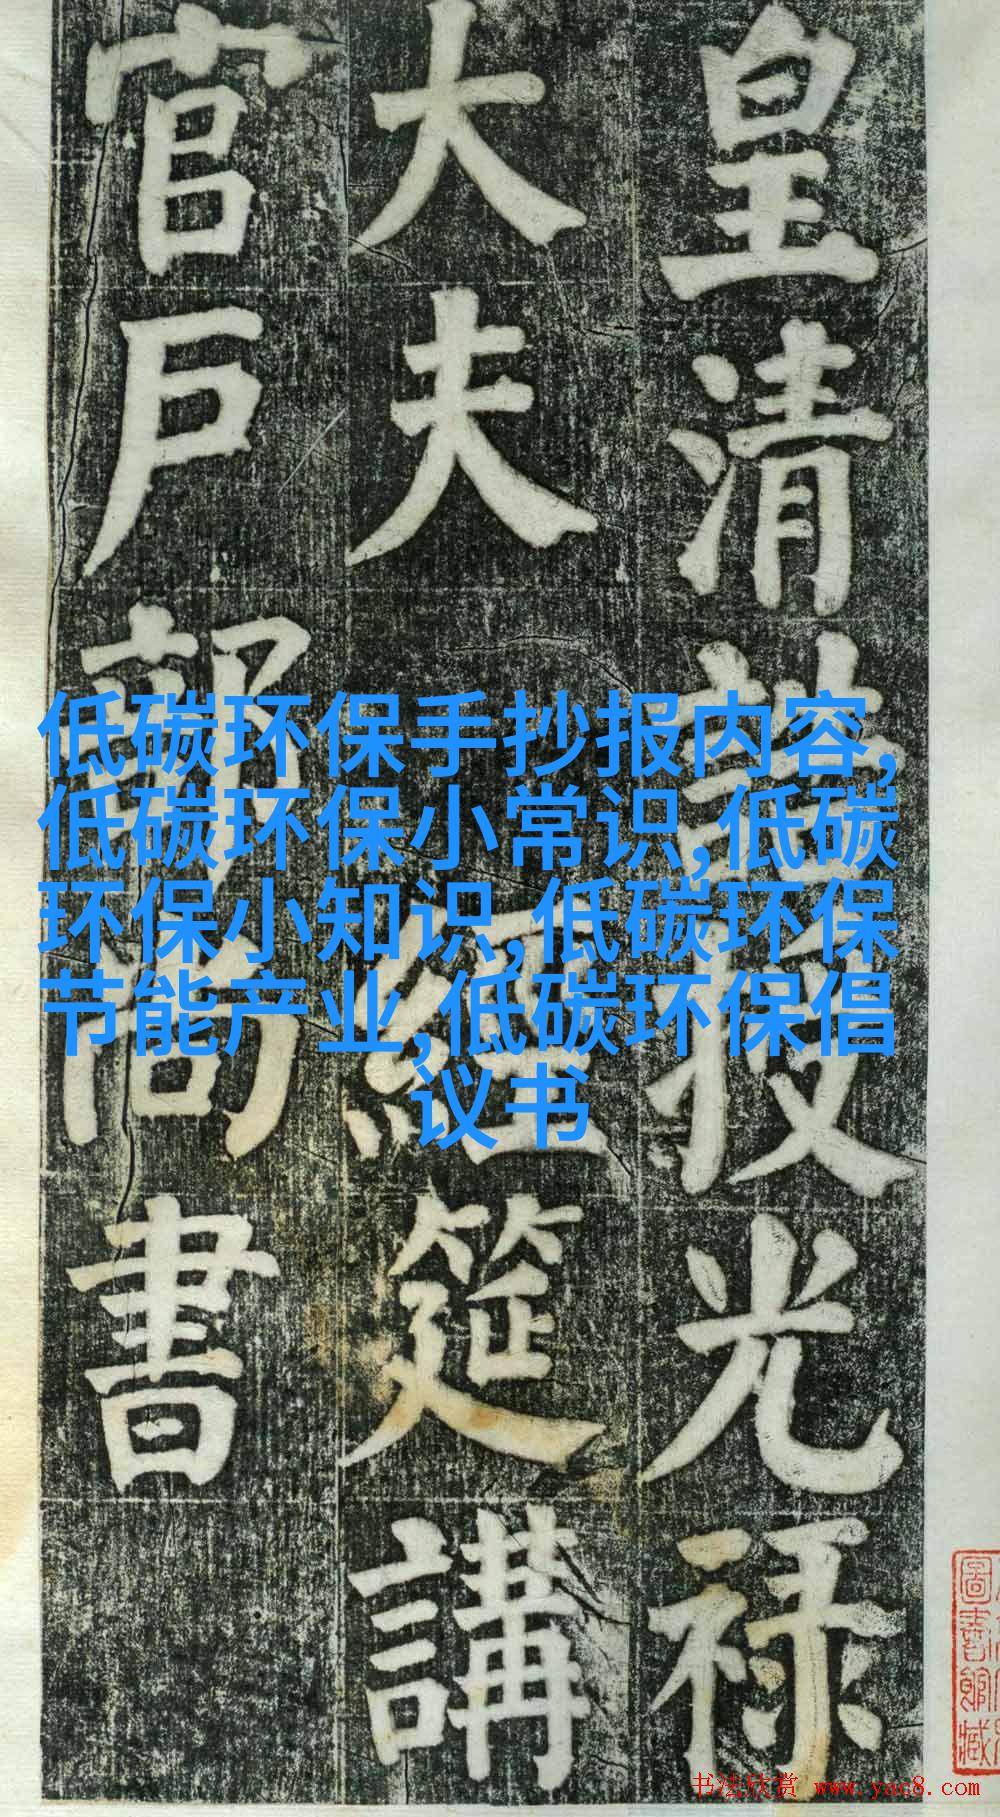 皇清誥授光祿
大夫 經筵講
官戶部尚書
低碳环保手抄报内容,
低碳环保小常识,低碳
环保小知识,低碳环保
节能产业,低碳环保倡
议书
圖書館藏
书法欣赏 www.yac8.com